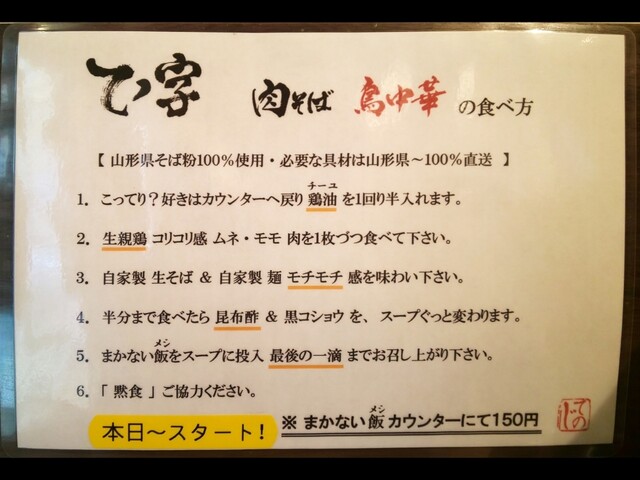 て字 肉そば 鳥中華 の食べ方
【 山形県そば粉100%使用・必要な具材は山形県～100%直送 】
1. こってり？好きはカウンターへ戻り 鶏油 を1回り半入れます。
チーユ
2. 生親鶏 コリコリ感 ムネ・モモ 肉を1枚づつ食べて下さい。
3. 自家製 生そば ＆ 自家製 麺 モチモチ 感を味わい下さい。
4. 半分まで食べたら 昆布酢 ＆ 黒コショウ を、スープぐっと変わります。
5. まかない飯をスープに投入 最後の一滴 までお召し上がり下さい。
メシ
6. 「 黙食 」ご協力ください。
本日～スタート！
※ まかない飯 カウンターにて150円
メシ